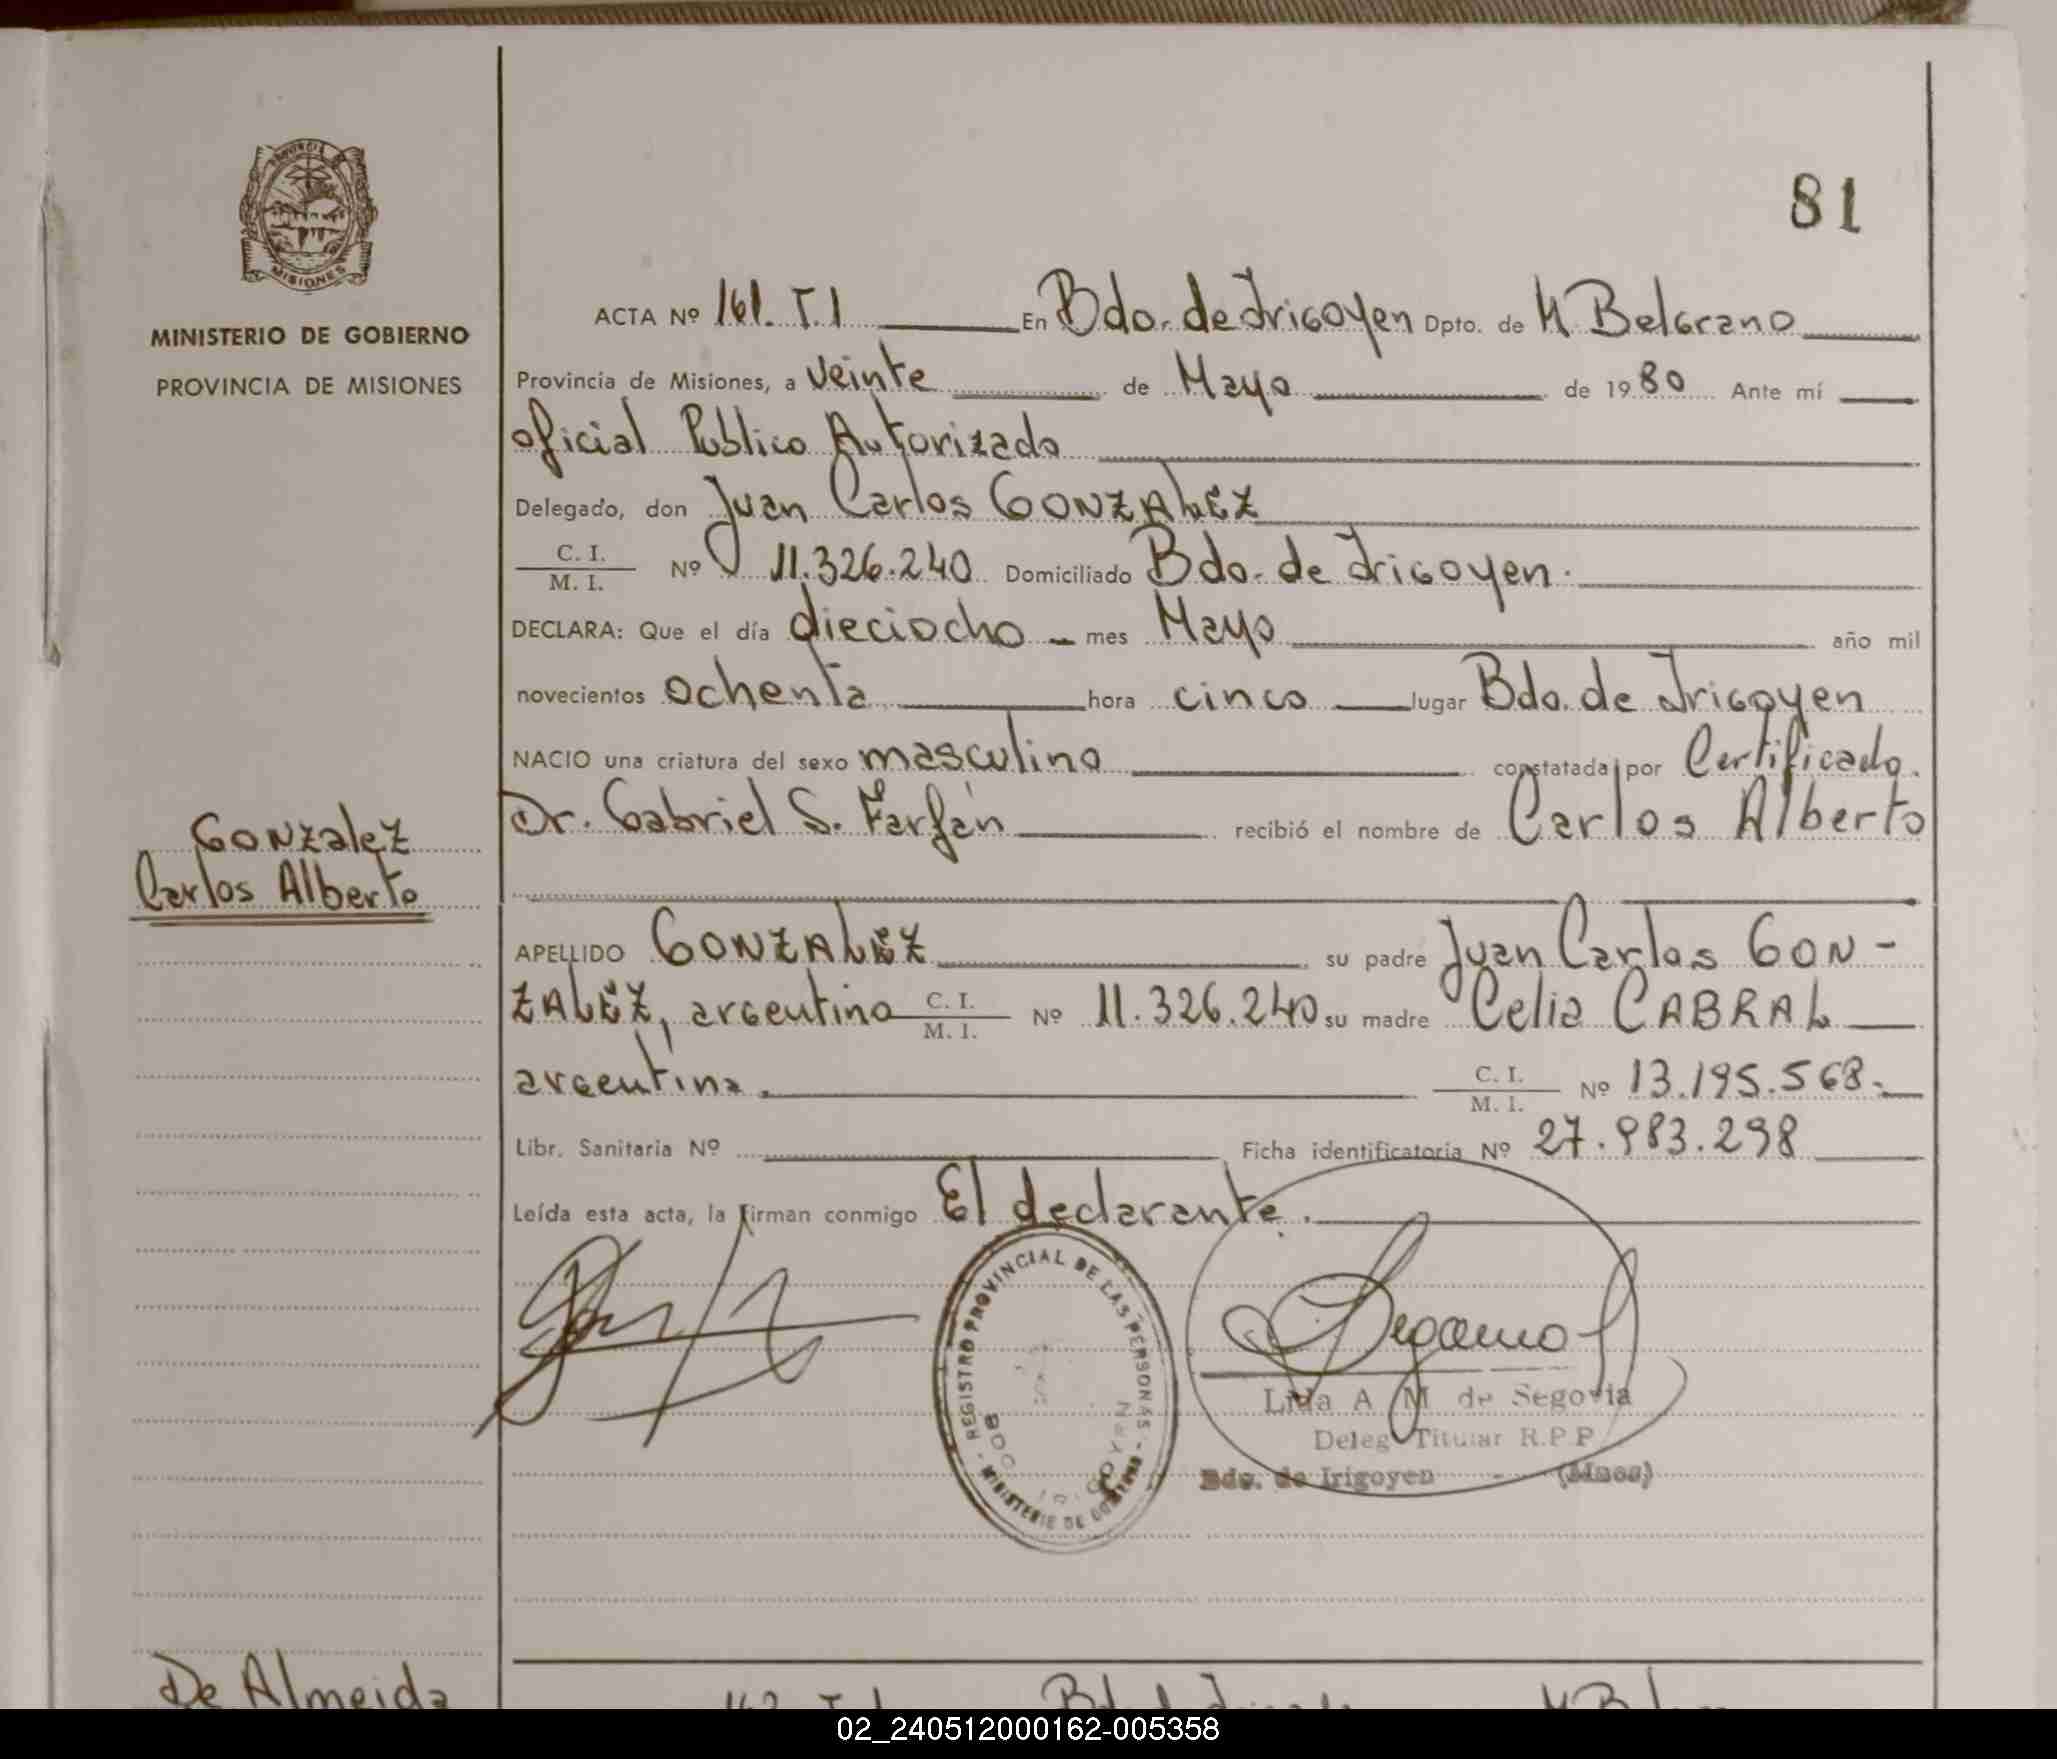 81
PROVINCIA DE
MISIONES
MINISTERIO DE GOBIERNO
PROVINCIA DE MISIONES
ACTA Nº 161. T.I En Bdo. de Irigoyen Dpto. de M Belgrano
Provincia de Misiones, a veinte de Mayo de 1980 Ante mí
oficial Publico Autorizado
Delegado, don Juan Carlos GONZALEZ
C. I.
M. I. Nº 11.326.240 Domiciliado Bdo. de Irigoyen.
DECLARA: Que el día dieciocho mes Mayo año mil
novecientos ochenta hora cinco lugar Bdo. de Irigoyen
NACIO una criatura del sexo masculino constatada por Certificado.
Dr. Gabriel S. Farfán recibió el nombre de Carlos Alberto
GONZalez
Carlos Alberto
APELLIDO GONZALEZ su padre Juan Carlos GON-
ZALEZ, argentino C. I. M. I. Nº 11.326.240 su madre Celia CABRAL
argentina. C. I. M. I. Nº 13.195.568.
Libr. Sanitaria Nº Ficha identificatoria Nº 27.983.298
Leída esta acta, la firman conmigo El declarante.
REGISTRO PROVINCIAL DE LAS PERSONAS
Lida A M de Segovia
Deleg Titular R.P.P
Bdo. de Irigoyen - (Mnes)
De Almeida
02_240512000162-005358